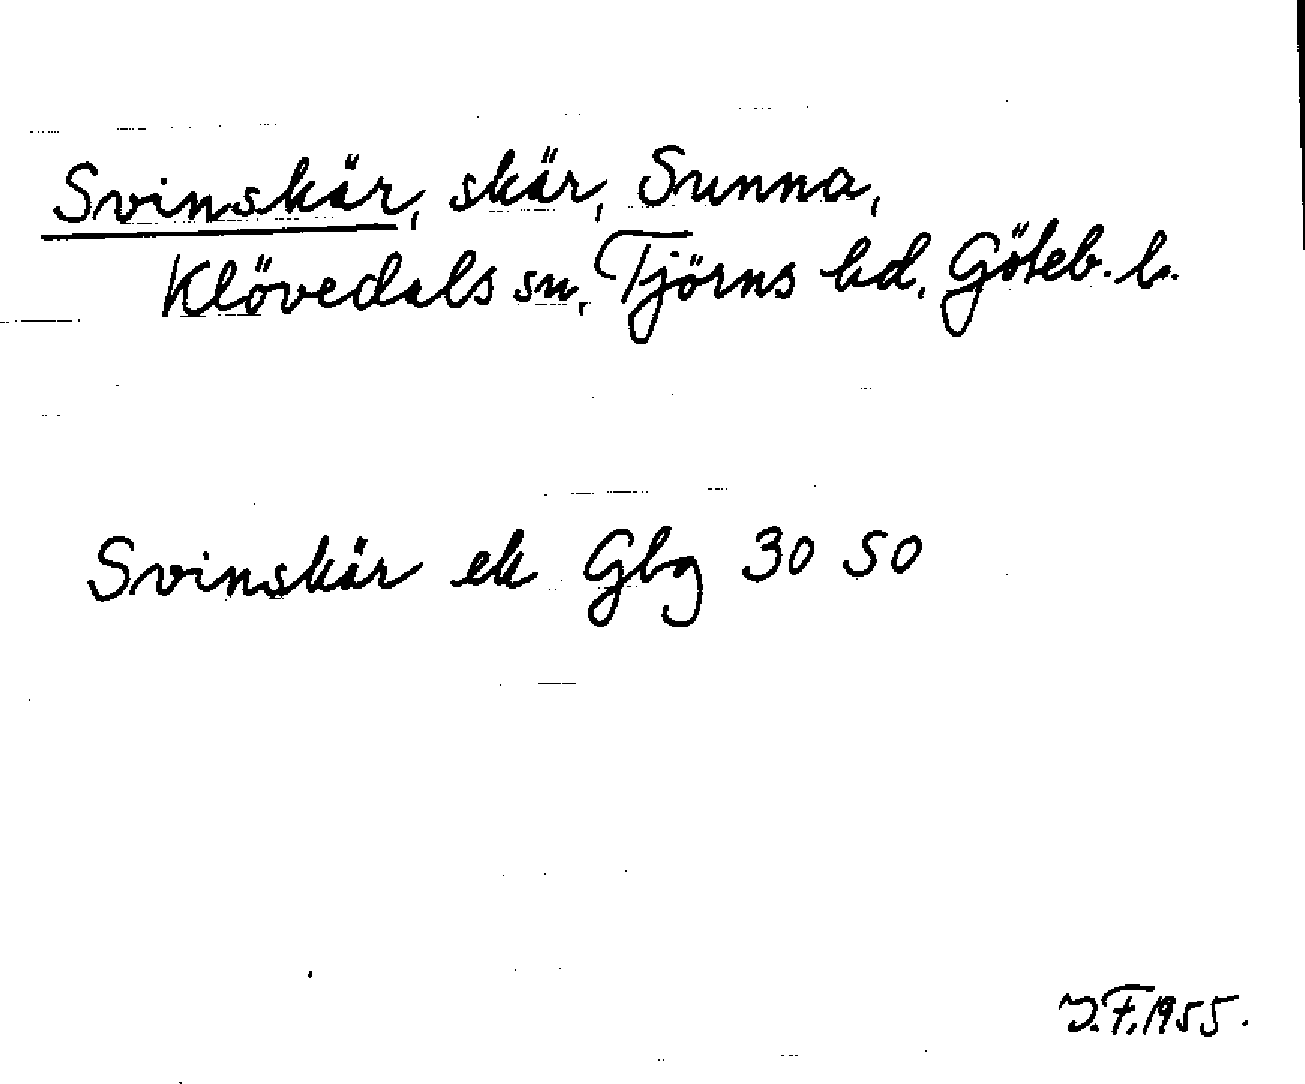 Svinskär, skär, Sunna,
Klövedals sn, Tjörns hd, Göteb. l.
Svinskär ek Gbg 30 50
J.F. 1955.